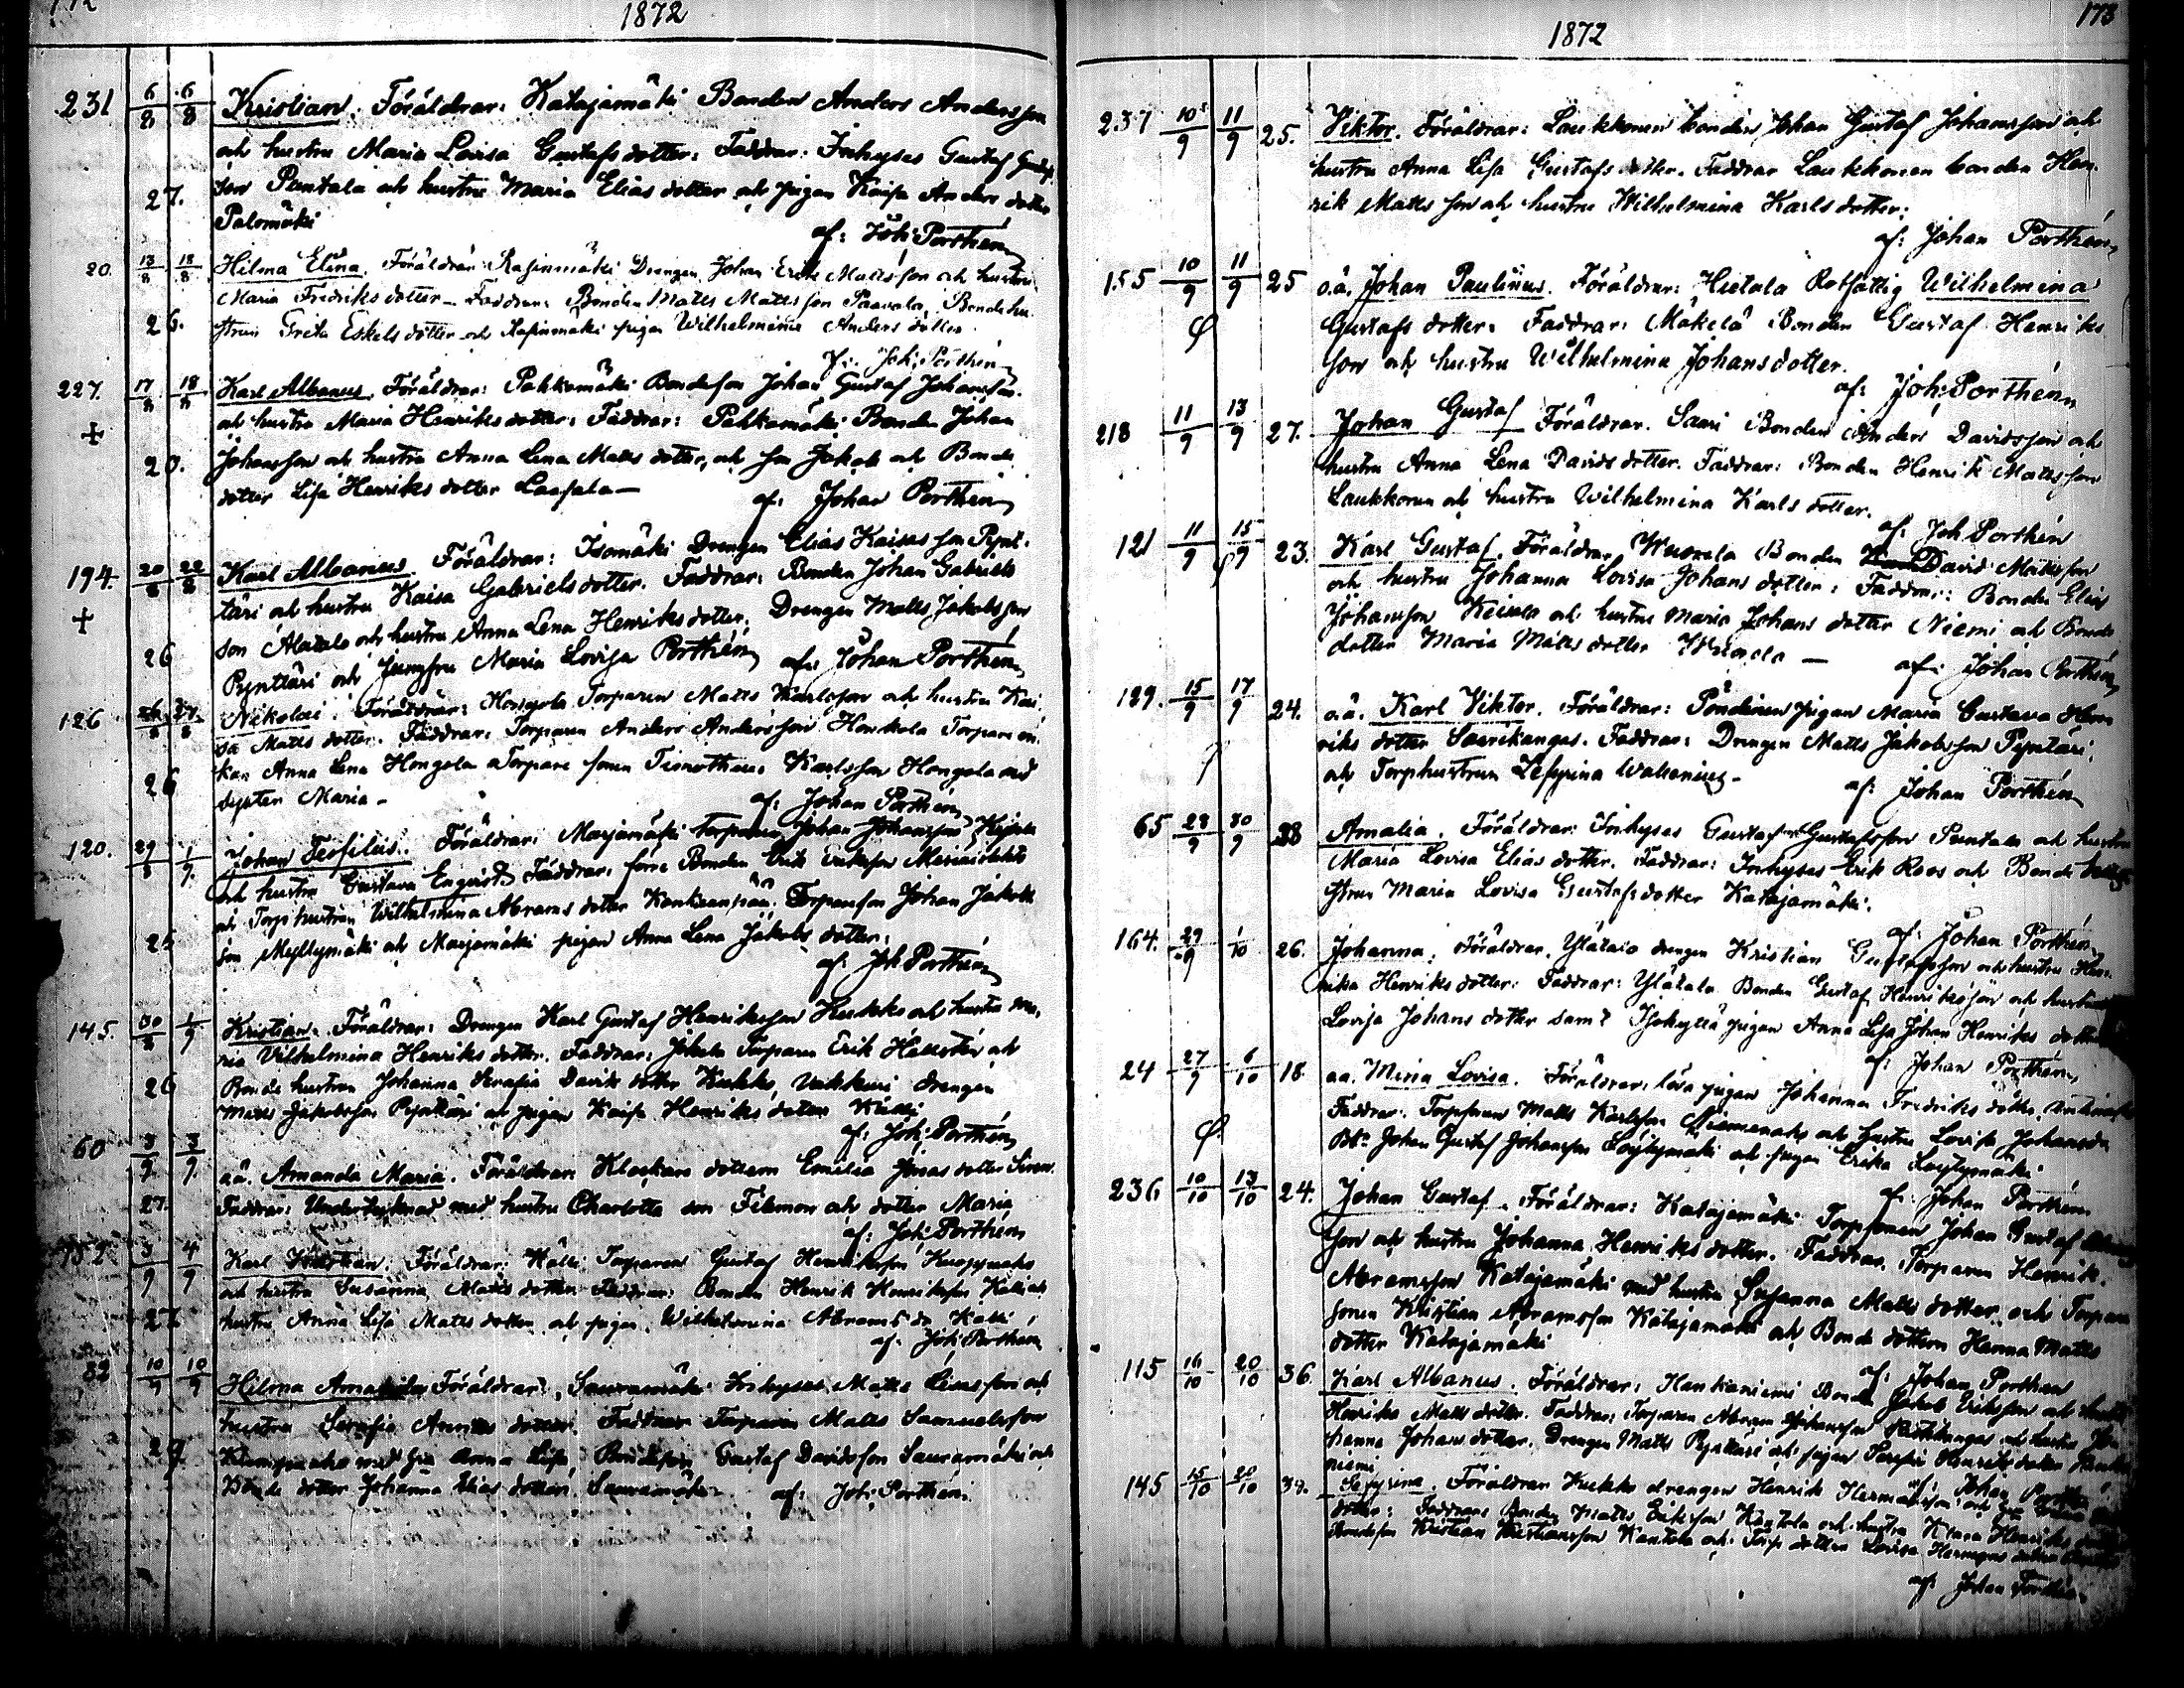 172
1872
231 6/8 6/8 Kristian. Föräldrar: Katajamäki Bonden Anders Andersson
och hustru Maria Lovisa Gustafsdotter: Faddrar: Inhyses Gustaf
son Pantala och hustru Maria Elias dotter och pigan Kaisa Anders dotter
27.
Palomäki
af: Joh: Porthén
20. 13/8 18/8 Hilma Elina. Föräldrar: Drengen Johan Erik Mattsson och hustru
Maria Fredriks dotter – Faddrar: Bonden Matts Mattsson Paavola, Bondehu
26. strun Greta Eskels dotter och pigan Wilhelmina Anders dotter.
af: Joh: Porthén
227. 17/8 18/8 Karl Albanus. Föräldrar: Pahkamäki Bondeson Johan Gustaf Johansson
+ och hustru Maria Henriks dotter: Faddrar: Pahkamäki Bonden Johan
20. Johansson och hustru Anna Lena Matts dotter, och son Jakob och Bonde
dotter Lisa Henriks dotter Laasala –
af: Johan Porthén
194. 20/8 22/8 Karl Albanus. Föräldrar: Isomäki Drengen Elias Kaisasson Pynt-
+ täri och hustru Kaisa Gabriels dotter. Faddrar: Bonden Johan Gabriels
son Alatalo och hustru Anna Lena Henriks dotter, Drengen Matts Jakobsson
26 Pynttäri och Jungfru Maria Lovisa Porthén af: Johan Porthén
126 26/8 27/8 Nikolai. Föräldrar: Hongola Torparen Matts Karlsson och hustru Kai
sa Matts dotter. Faddrar: Torparen Anders Andersson Honkola Torpare en-
26 kan Anna Lena Hongola Torpare sonen Timotheus Karlsson Hongola med
systen Maria –
af: Johan Porthén
120. 29/8 1/9 Johan Teofilus. Föräldrar: Marjamäki Torparen Johan Johansson
och hustru Gustava Engvist. Faddrar: förre Bonden Erik Eriksson
och Torphustrun Wilhelmina Abrams dotter Kankaanpää. Torparson Johan Jakobs
26 son Myllymäki och Marjamäki pigan Anna Lena Jakobs dotter.
af: Joh Porthén
145. 30/8 1/9 Kristian. Föräldrar: Drengen Karl Gustaf Henriksson Kukko och hustru Ma-
ria Vilhelmina Henriks dotter. Faddrar: Torparen Erik Hällstén och
26 Bonde hustrun Johanna Serafia Davids dotter Kukko, drengen
Matts Jakobsson Pynttäri och pigan Kaisa Henriks dotter Källi
af: Joh: Porthén
60 3/9 3/9 o.ä. Amanda Maria. Föräldrar: Klockare dottern Emilia Jonas dotter Siren.
27. Faddrar: Undertecknad med hustru Charlotta son Filemon och dotter Maria
af: Joh: Porthén
152 3/9 4/9 Karl Kristian. Föräldrar: Källi Torparen Gustaf Henriksson
och hustru Susanna Matts dotter Faddrar: Bonden Henrik Henriksson Källi och
27 hustru Anna Lisa Matts dotter och pigan Wilhelmina Abrams dr Källi
af: Joh: Porthén
82 10/9 10/9 Hilma Föräldrar: Sauramäki Inhyses Matts och
hustru Serafia dotter. Faddrar Torparen Matts Samuelsson
29. med hu Anna Lisa, Bondeson Gustaf Davidsson Sauramäki och
Bonde dotter Johanna Elias dotter Sauramäki. af: Joh: Porthén
173
1872
237 10/9 11/9 25. Viktor. Föräldrar: Laukkonen bonden Johan Gustaf Johansson och
hustru Anna Lisa Gustafs dotter. Faddrar Laukkonen bonden Hen-
rik Matts son och hustru Wilhelmina Karls dotter;
af: Johan Porthén
155 10/9 11/9 25 o.ä. Johan Paulinus. Föräldrar: Hietala Rotfattig Wilhelmina
Gustafs dotter: Faddrar: Mäkelä Bonden Gustaf Henriks
son och hustru Wilhelmina Johansdotter.
af: Joh: Porthén
218 11/9 13/9 27. Johan Gustaf Föräldrar. Saari Bonden Anders Davidsson och
hustru Anna Lena Davids dotter. Faddrar: Bonden Henrik Mattsson
Laukkonen och hustru Wilhelmina Karls dotter.
af: Joh Porthén
121 11/9 15/9 23. Karl Gustaf. Föräldrar Bonden David Mattsson
och hustru Johanna Lovisa Johans dotter: Faddrar: Bonden Elias
Johansson och hustru Maria Johans dotter Niemi och Bonde
dotter Maria Matts dotter –
af: Johan Porthén
129. 15/9 17/9 24. o.ä. Karl Viktor. Föräldrar: Pöndinen pigan Maria Gustava Hen-
riks dotter Saarikangas. Faddrar: Drengen Matts Jakobsson Pynttäri,
och Torphustrun Sefyrina –
af: Johan Porthén
65 28/9 30/9 28 Amalia. Föräldrar: Inhyses Gustaf Gustafsson Pantala och hustru
Maria Lovisa Elias dotter. Faddrar: Inhyses Erik Roos och Bonde
strun Maria Lovisa Gustafs dotter Katajamäki.
af: Johan Porthén
164. 29/9 1/10 26. Johanna. Föräldrar. Ylätalo drengen Kristian Gustafsson och hustru Hen-
rika Henriks dotter: Faddrar: Ylätalo Bonden Gustaf Henriksson och hustru
Lovisa Johans dotter samt Isokyllä pigan Anna Lisa Johan Henriks dotter
af: Johan Porthén
24 27/9 6/10 18. oä. Mina Lovisa. Föräldrar: lösa pigan Johanna Fredriks dotter
Faddrar: Torparen Matts Karlsson och hustru Lovisa Johansdr
Johan Gustaf Johansson Löytymäki och pigan Erika Löytymäki
af: Johan Porthén
236 10/10 13/10 24. Johan Gustaf. Föräldrar: Katajamäki Torpsonen Johan Gustaf
son och hustru Johanna Henriks dotter. Faddrar. Torparen Henrik
Abramsson Katajamäki med hustru Susanna Matts dotter och Torpare
sonen Kristian Abramsson Katajamäki och Bonde dottern Hanna Matts
dotter Katajamäki
af: Johan Porthén
115 16/10 20/10 36. Karl Albanus. Föräldrar: Hankaniemi Bonden Jakob Eriksson och hustru
Henrika Matts dotter. Faddrar: Torparen Abram Johansson och hustru Jo-
hanna Johans dotter. Drengen Matts Pynttäri och pigan Serafia Henriks dotter
niemi
af: Johan Porthén
145 15/10 20/10 Sefyrina. Föräldrar Kukko drengen Henrik Hermansson och
dotter: Faddrar: Bonden Matts Eriksson Kantola och hustru Klara Henriks
Bondeson Kristian Kristiansson Kantola och Torp dottern Lovisa Hermans dotter
af: Johan Porthén